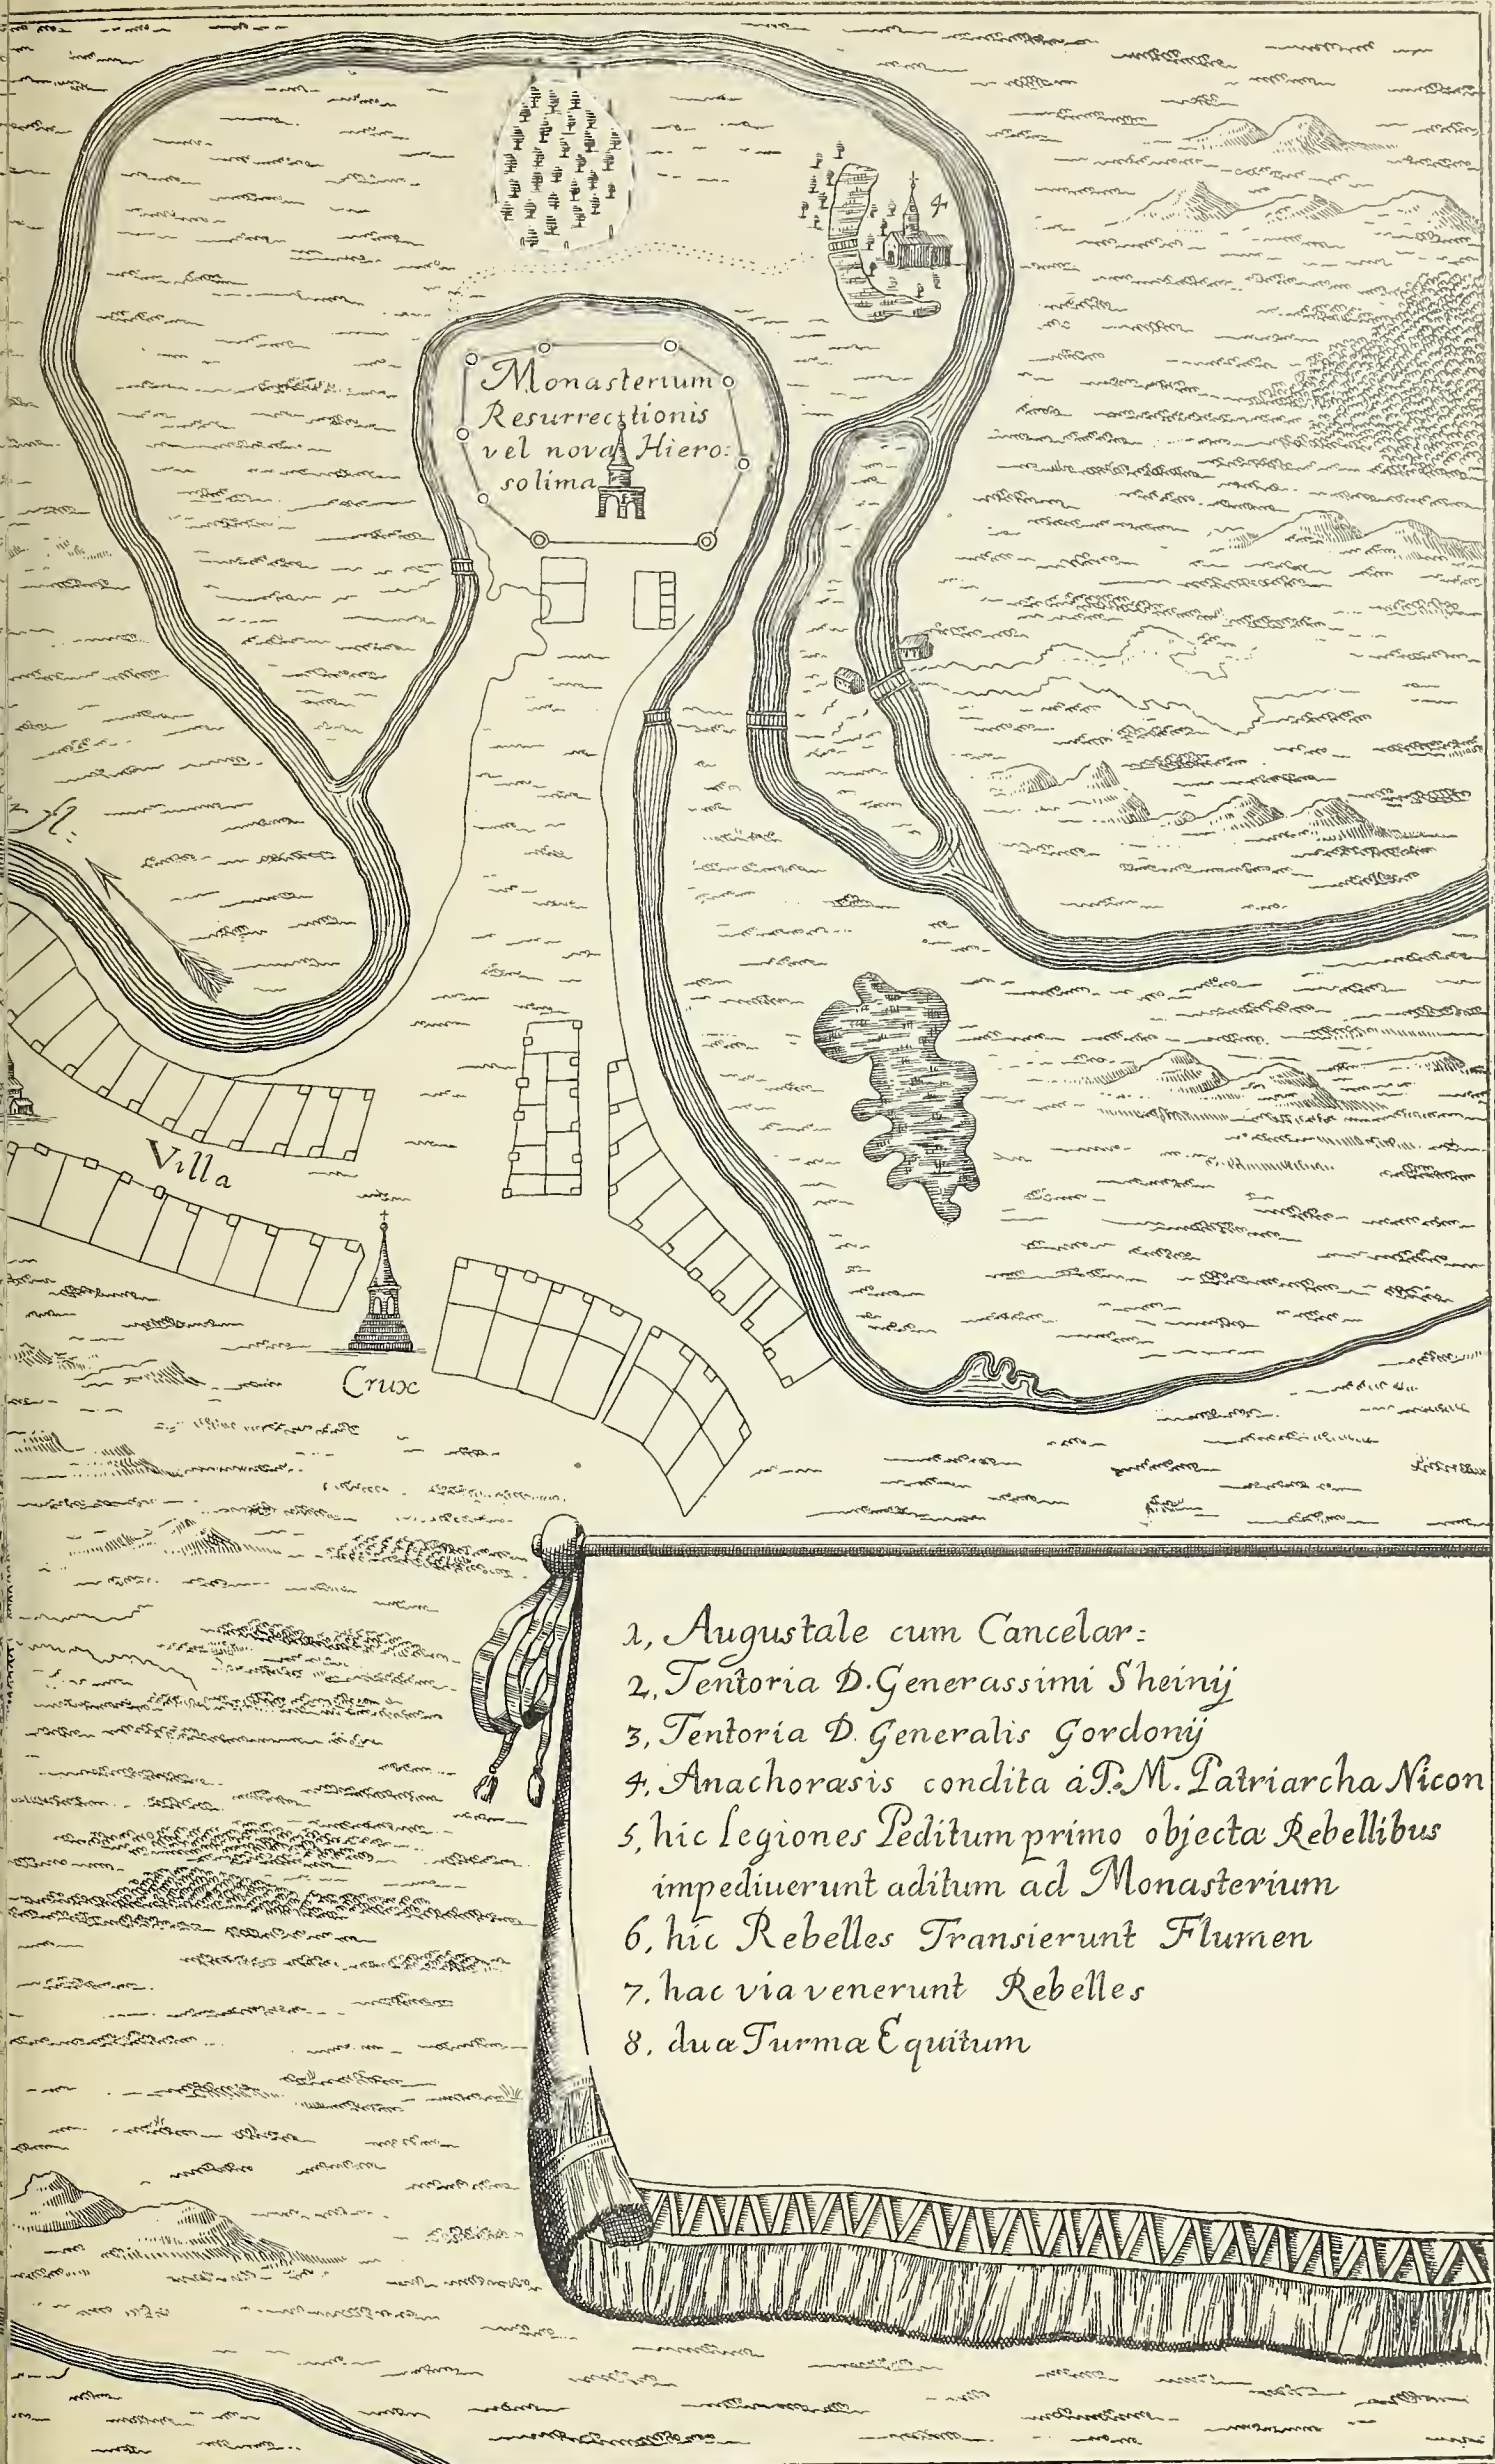 4
Monasterium
Resurrectionis
vel nova Hiero:
solima
fl:
Villa
Crux
1, Augustale cum Cancelar:
2, Tentoria D. Generassimi Sheinij
3, Tentoria D. Generalis Gordonij
4, Anachoræsis condita á P. M. Patriarcha Nicon
5, hic legiones Peditum primo objectæ Rebellibus
impediuerunt aditum ad Monasterium
6, hic Rebelles Transierunt Flumen
7. hac via venerunt Rebelles
8. duæ Turmæ Equitum